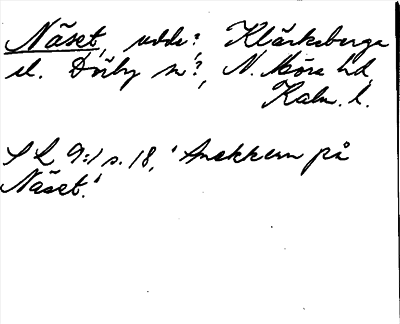 Näset, udde?, Kläckeberga
el. Dörby sn?, N. Möre hd,
Kalm. l.
SL 9:1 s. 18, 'Snekkeun på
Näset.'